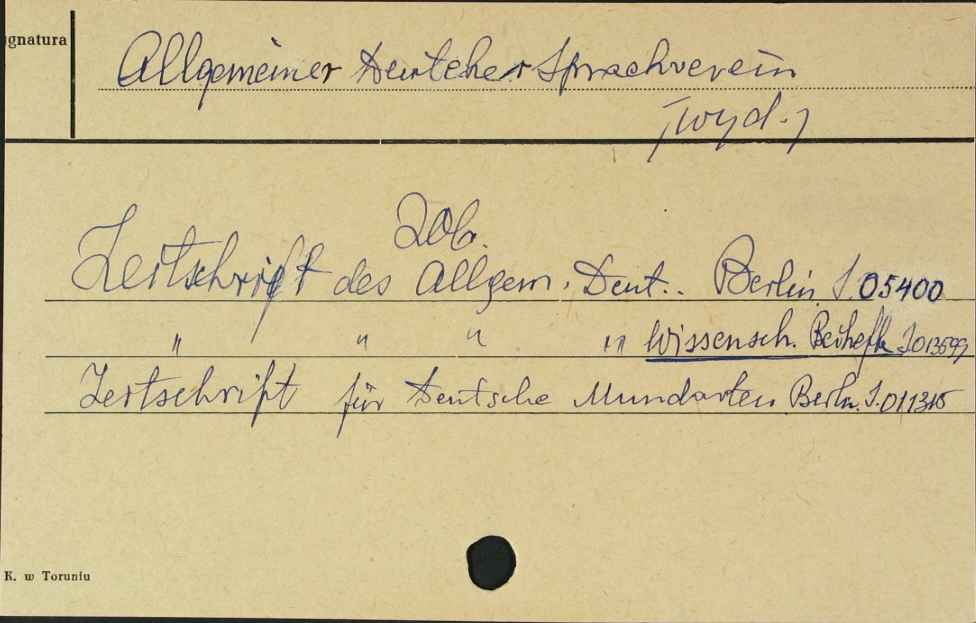 gnatura
Allgemeiner Deutcher Sprachverein
[wyd.]
Zob.
Zeitschrift des Allgem. Deut.. Berlin S.05400
" " " " Wissensch. Beihefte S013599
Zeitschrift für Deutsche Mundarten Berln. S.011315
K. w Toruniu